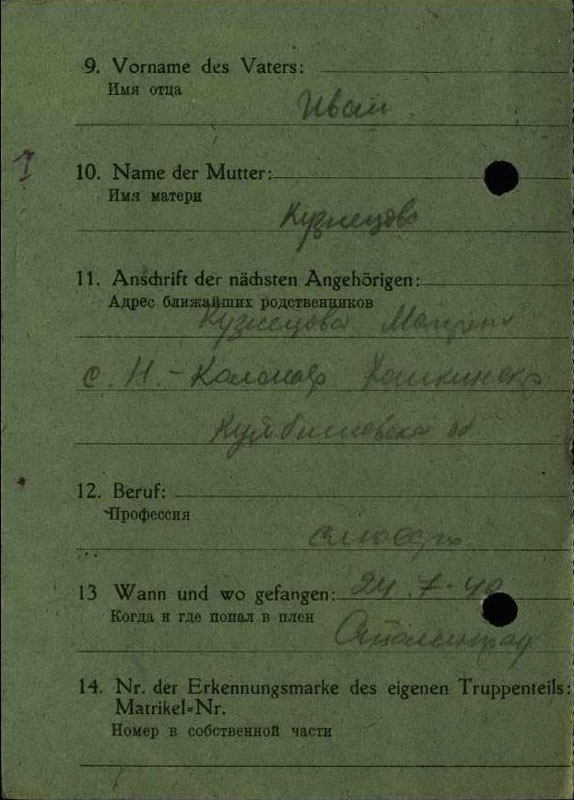 9. Vorname des Vaters:
Имя отца
Иван
10. Name der Mutter:
Имя матери
Кузнецова
11. Anschrift der nächsten Angehörigen:
Адрес ближайших родственников
Кузнецова
с. Н.-
12. Beruf:
Профессия
слесарь
13 Wann und wo gefangen:
24.7.42
Когда и где попал в плен
Сталинград
14. Nr. der Erkennungsmarke des eigenen Truppenteils:
Matrikel-Nr.
Номер в собственной части